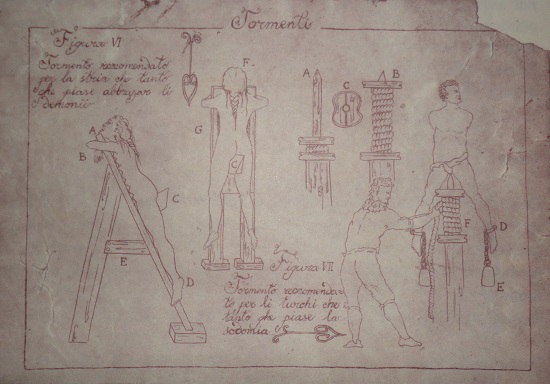 Tormenti
Figura VI
Tormento recomendato
per la stria che tanto
ghi piase abbrasar li
demonii
A
B
C
D
E
F
G
C
Figura VII
Tormento recomendar
to per li turchi che
tanto ghi piase la
sodomia
A
C
B
F
D
E